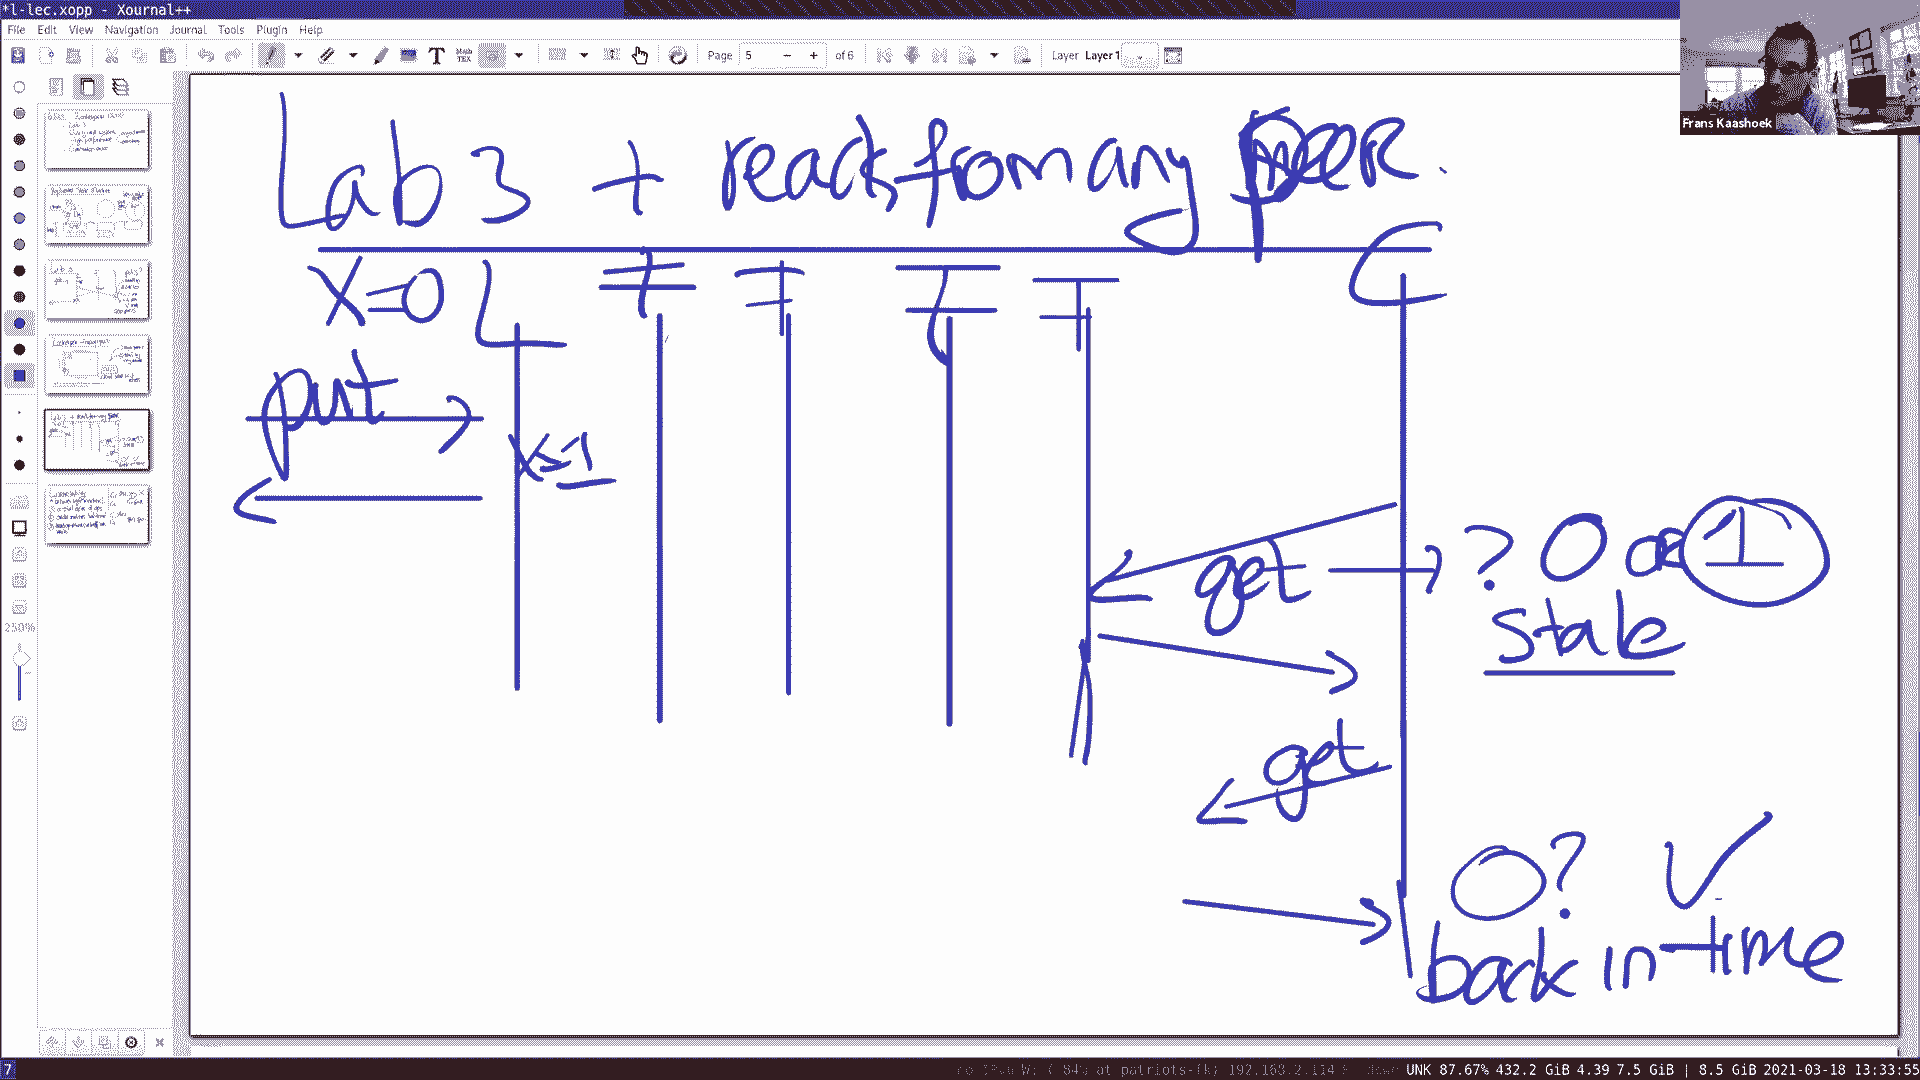 *l-lec.xopp - Xournal++
File Edit View Navigation Journal Tools Plugin Help
Page 5 of 6 Layer Layer 1
Frans Kaashoek
Lab 3 + reads from any peer.
x=0 L F F F F C
put
x=1
get ? 0 or 1
stale
get
0?
back in-time
250%
7
192.168.2.114 UNK 87.67% 432.2 GiB 4.39 7.5 GiB | 8.5 GiB 2021-03-18 13:33:55